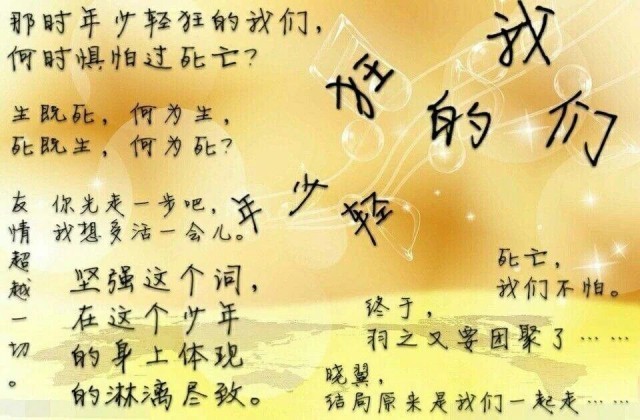 那时年少轻狂的我们,
何时惧怕过死亡?
生既死,何为生,
死既生,何为死?
友情超越一切。
你先走一步吧,
我想多活一会儿。
坚强这个词,
在这个少年
的身上体现
的淋漓尽致。
年少轻狂的我们
死亡,
我们不怕。
终于,
羽之又要团聚了……
晓翼,
结局原来是我们一起走……